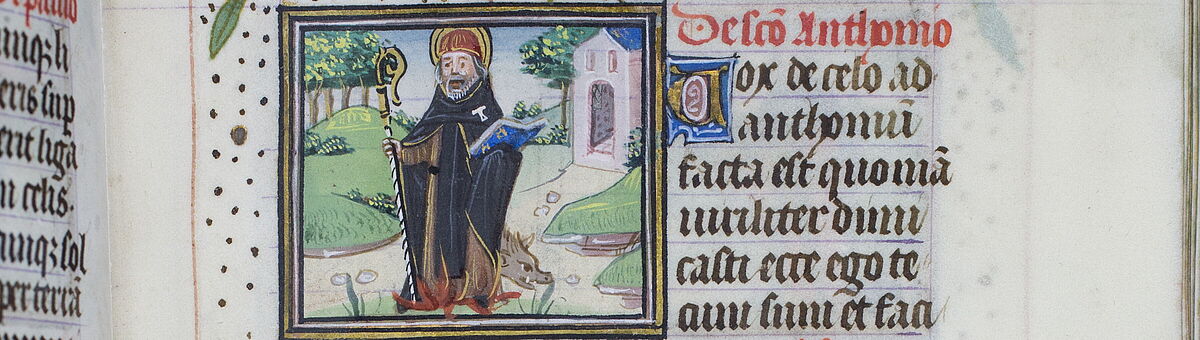 e petrıo
unqȝ li
eris sup
erit liga
in celis.
unqȝ sol
per terrā
De sc̄o Anthonio
Vox de celo ad
anthoniū
facta est quoniā
uiriliter dimi
casti ecce ego te
cum sum et faci